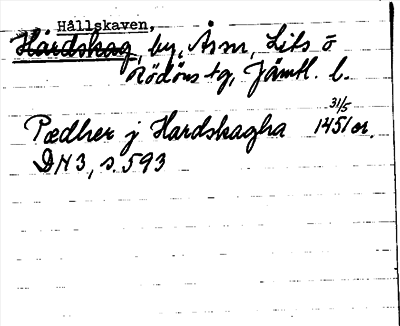 Hållskaven,
Hårdskag, by, Åsn, Lits ö
Rödöns tg, Jämtl. l.
31/5
Pædher j Hardskagha 1451 or.
DN 3, s. 593